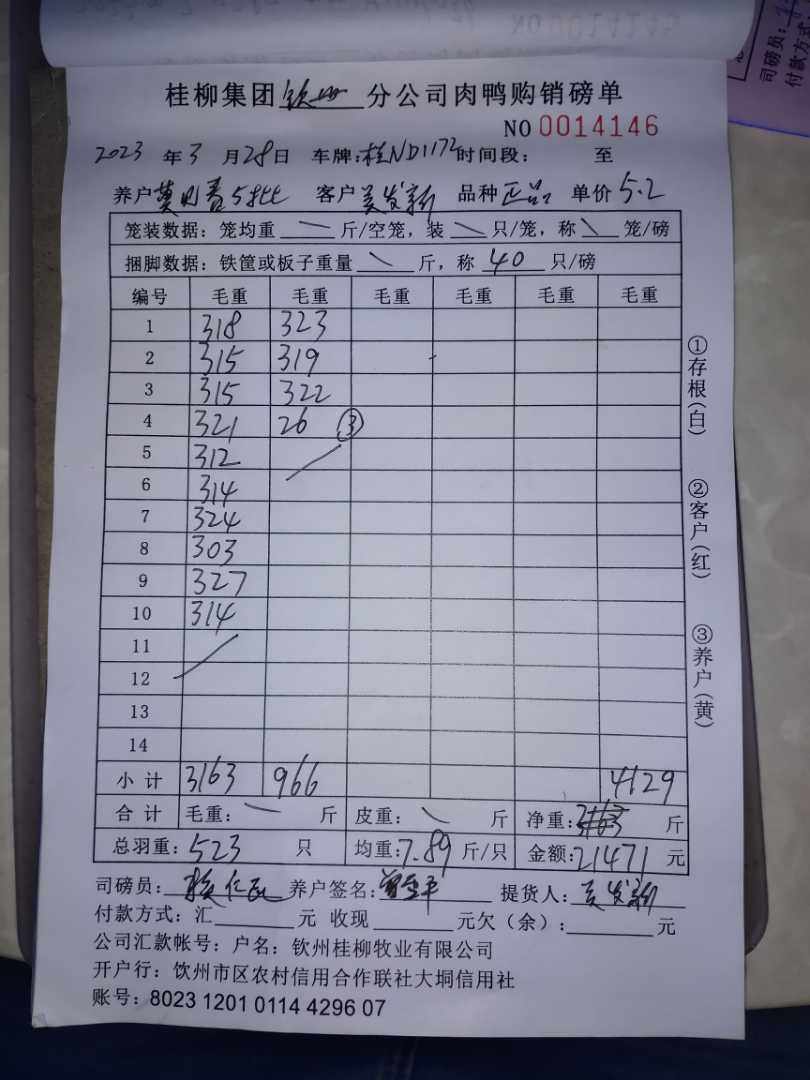 桂柳集团钦州分公司肉鸭购销磅单
NO 0014146
2023年3月28日 车牌:桂ND1172 时间段: 至
养户 5批 客户 发新 品种 正品 单价 5.2
笼装数据: 笼均重 斤/空笼, 装 只/笼, 称 笼/磅
捆脚数据: 铁筐或板子重量 斤, 称 40 只/磅
编号 毛重 毛重 毛重 毛重 毛重 毛重
1 318 323
2 315 319
3 315 322
4 321 26 ③
5 312
6 314
7 324
8 303
9 327
10 314
11
12
13
14
小计 3163 966 4129
合计 毛重: 斤 皮重: 斤 净重: 3163 斤
总羽重: 523 只 均重: 7.89 斤/只 金额: 21471 元
司磅员: 养户签名: 提货人: 发新
付款方式: 汇 元 收现 元欠(余): 元
公司汇款帐号: 户名: 钦州桂柳牧业有限公司
开户行: 钦州市区农村信用合作联社大垌信用社
账号: 8023 1201 0114 4296 07
①存根(白)
②客户(红)
③养户(黄)
司磅员:
付款方式